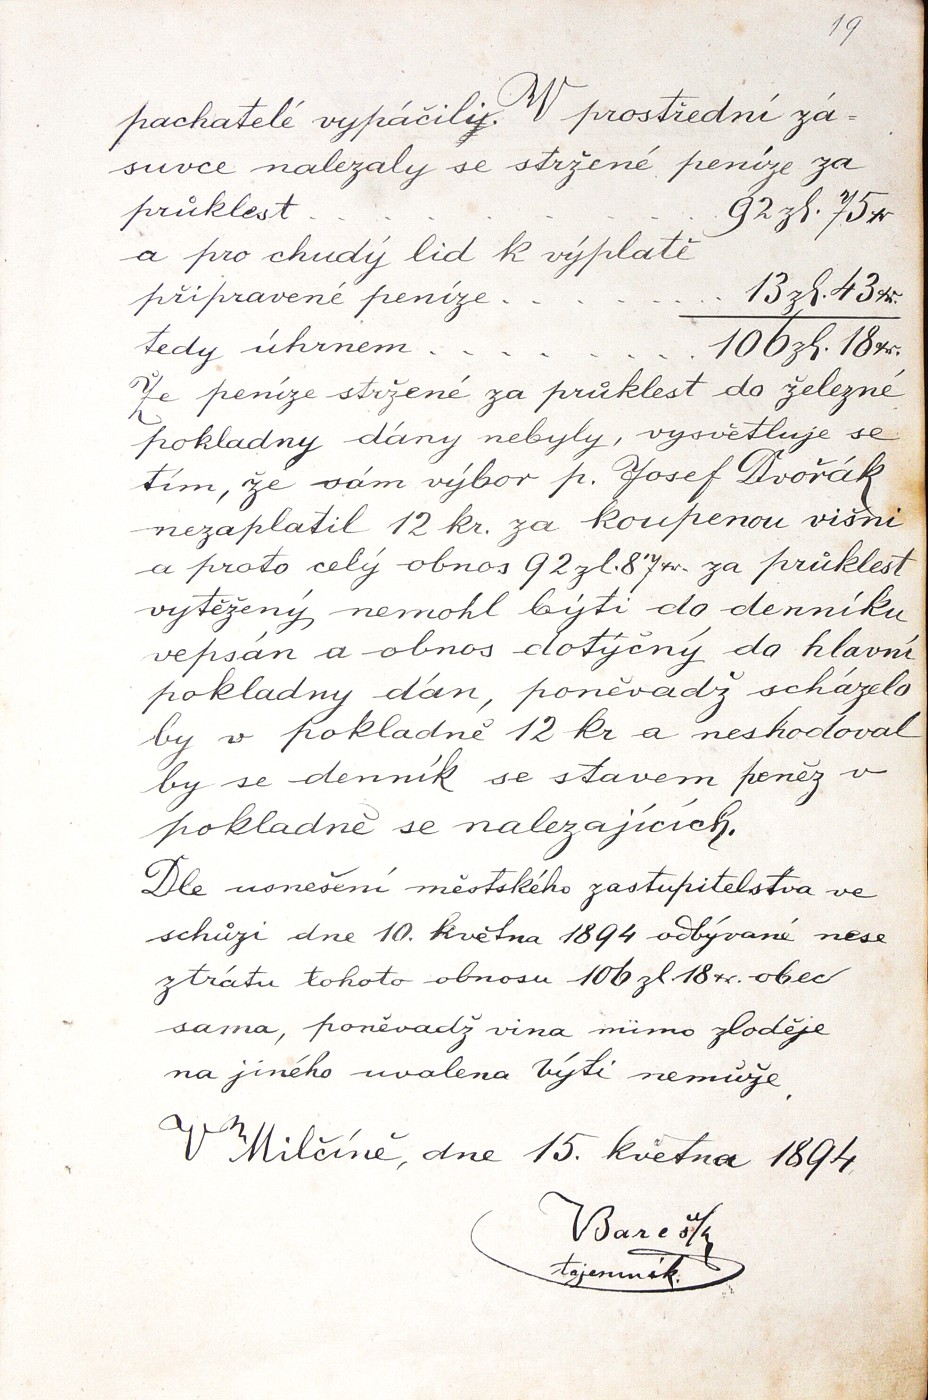 19
pachatelé vypáčili. V prostřední zá=
suvce nalezaly se stržené peníze za
průklest . . . . . . . . . 92 zl. 75 kr
a pro chudý lid k výplatě
připravené peníze . . . . . . . . 13 zl. 43 kr.
tedy úhrnem . . . . . . . . . 106 zl. 18 kr.
Že peníze stržené za průklest do železné
pokladny dány nebyly, vysvětluje se
tím, že sám výbor p. Josef Dvořák
nezaplatil 12 kr. za koupenou višni
a proto celý obnos 92 zl. 87 kr. za průklest
vytěžený nemohl býti do denníku
vepsán a obnos dotýčný do hlavní
pokladny dán, poněvadž scházelo
by v pokladně 12 kr a neshodoval
by se denník se stavem peněz v
pokladně se nalezajících.
Dle usnešení městského zastupitelstva ve
schůzi dne 10. května 1894 odbývané nese
ztrátu tohoto obnosu 106 zl. 18 kr. obec
sama, poněvadž vina mimo zloděje
na jiného uvalena býti nemůže.
V Milčíně, dne 15. května 1894.
Bareš
tajemník.